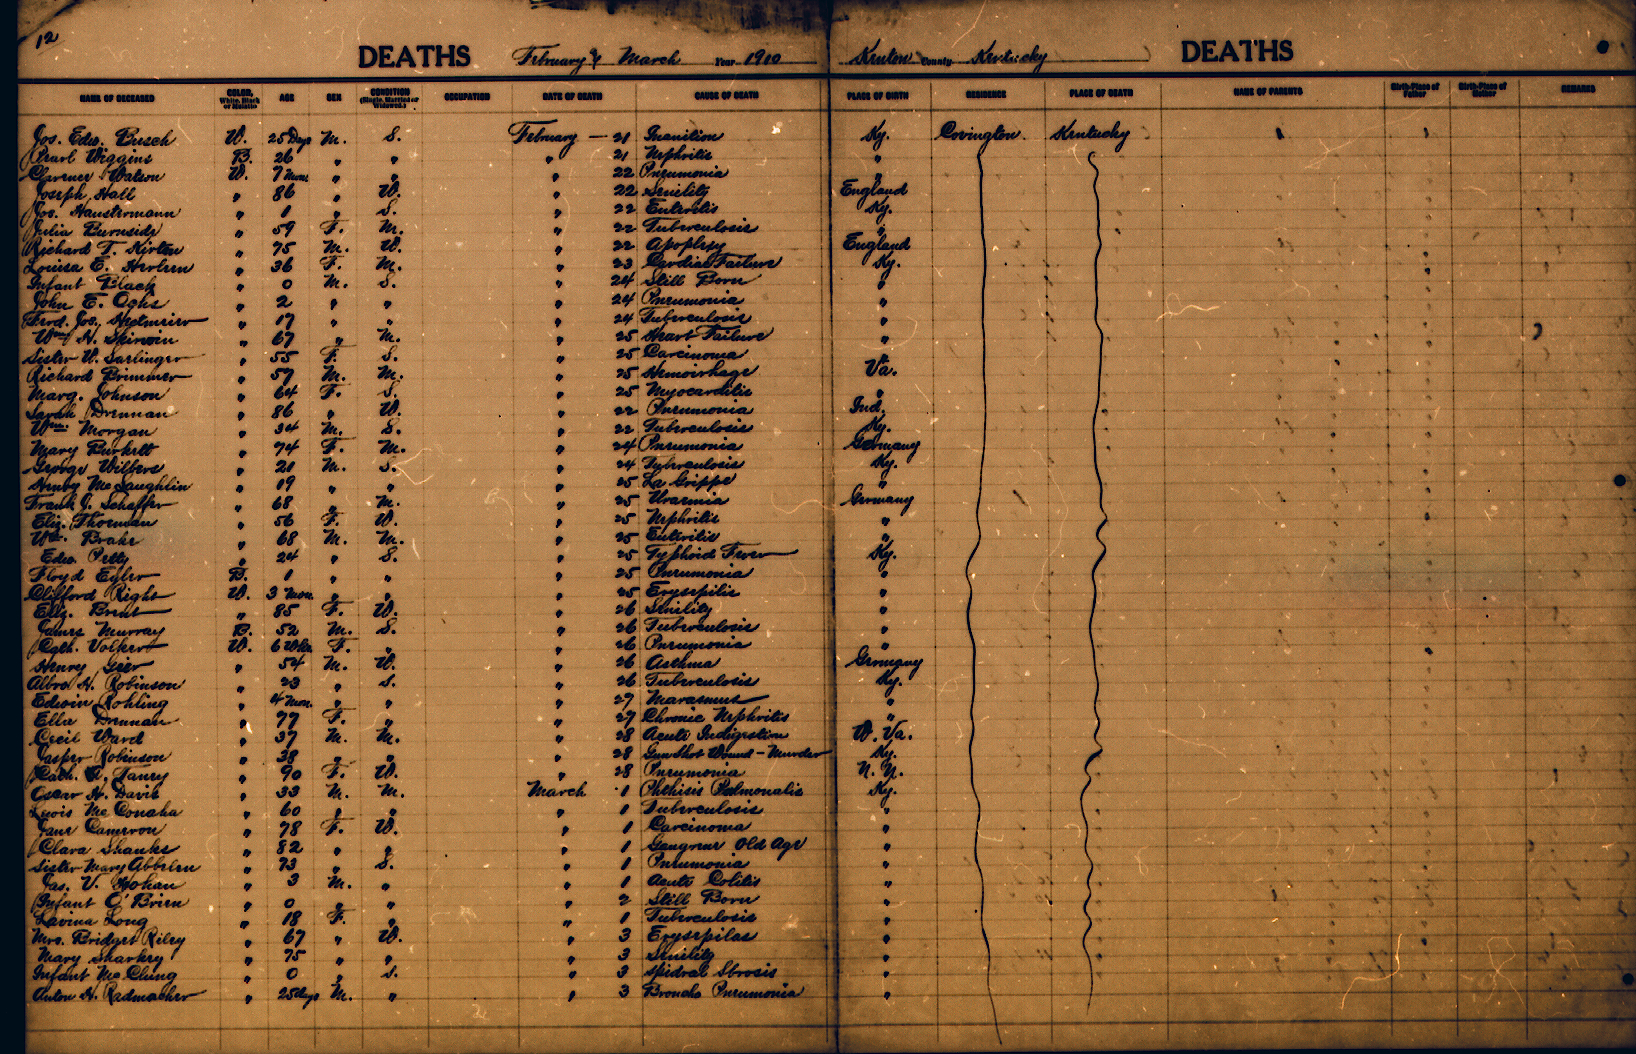 12
DEATHS February & March Year 1910 Kenton County Kentucky DEATHS
NAME OF DECEASED COLOR, White, Black or Mulatto AGE SEX CONDITION (Single, Married or Widowed.) OCCUPATION DATE OF DEATH CAUSE OF DEATH PLACE OF BIRTH RESIDENCE PLACE OF DEATH NAME OF PARENTS Birth-Place of Father Birth-Place of Mother REMARKS
Jos. Edw. Busch W. 25 Days M. S. February — 21 Inanition Ky. Covington Kentucky
Pearl Wiggins B. 26 " " " 21 Nephritis "
Clarence Watson W. 7 Mon. " " " 22 Pneumonia "
Joseph Hall " 86 " W. " 22 Senility England
Jos. Haustermann " 1 " S. " 22 Enteritis Ky.
Julia Burnside " 59 F. M. " 22 Tuberculosis "
Richard T. " 75 M. W. " 22 Apoplexy England
Louisa E. " 36 F. M. " 23 Cardiac Failure Ky.
Infant Black " 0 M. S. " 24 Still Born "
John E. Ochs " 2 " " " 24 Pneumonia "
Fred. Jos. " 17 " " " 24 Tuberculosis "
Wm. H. " 67 " M. " 25 Heart Failure "
Sister W. Sarlinger " 55 F. S. " 25 Carcinoma "
Richard Brimmer " 57 M. M. " 25 Hemorrhage Va.
Marg. Johnson " 64 F. S. " 25 Myocarditis "
Sarah Drennan " 86 " W. " 22 Pneumonia Ind.
Wm. Morgan " 34 M. S. " 22 Tuberculosis Ky.
Mary Burkett " 74 F. M. " 24 Pneumonia Germany
George Wilbers " 21 M. S. " 24 Tuberculosis Ky.
Henry McLaughlin " 19 " " " 25 La Grippe "
Frank J. Schaffer " 68 " M. " 25 Uraemia Germany
Eliz. Thorman " 56 F. W. " 25 Nephritis "
Wm. Brake " 68 M. M. " 25 Enteritis "
Edw. Petty " 24 " S. " 25 Typhoid Fever Ky.
Floyd Eyler B. 1 " " " 25 Pneumonia "
Clifford Right W. 3 Mon. " " " 25 Erysipilis "
Eliz. Brent " 85 F. W. " 26 Senility "
James Murray B. 52 M. S. " 26 Tuberculosis "
Cath. Volker W. 6 Wks. F. " " 26 Pneumonia "
Henry Geer " 54 M. W. " 26 Asthma Germany
Albra H. Robinson " 23 " S. " 26 Tuberculosis Ky.
Edwin Rohling " 4 Mon. " " " 27 Marasmus "
Ella Drennan " 77 F. " " 27 Chronic Nephritis "
Cecil Ward " 37 M. M. " 28 Acute Indigestion W. Va.
Jasper Robinson " 38 " " " 28 Gun Shot Wound – Murder Ky.
Cath. Taney " 90 F. W. " 28 Pneumonia N. Y.
Oscar H. Davis " 33 M. M. March 1 Phthisis Pulmonalis Ky.
Lewis McConaha " 60 " " " 1 Tuberculosis "
Jane Cameron " 78 F. W. " 1 Carcinoma "
Clara Shanks " 82 " " " 1 Gangrene Old Age "
Sister Mary Abbelen " 73 " S. " 1 Pneumonia "
Jas. V. Hohan " 3 M. " " 1 Acute Colitis "
Infant O'Brien " 0 " " " 2 Still Born "
Lavina Long " 18 F. " " 1 Tuberculosis "
Mrs. Bridget Riley " 67 " W. " 3 Erysepilas "
Mary Sharkey " 75 " " " 3 Senility "
Infant McClung " 0 " S. " 3 "
Anton H. Radmacher " 25 days M. " " 3 Broncho Pneumonia "